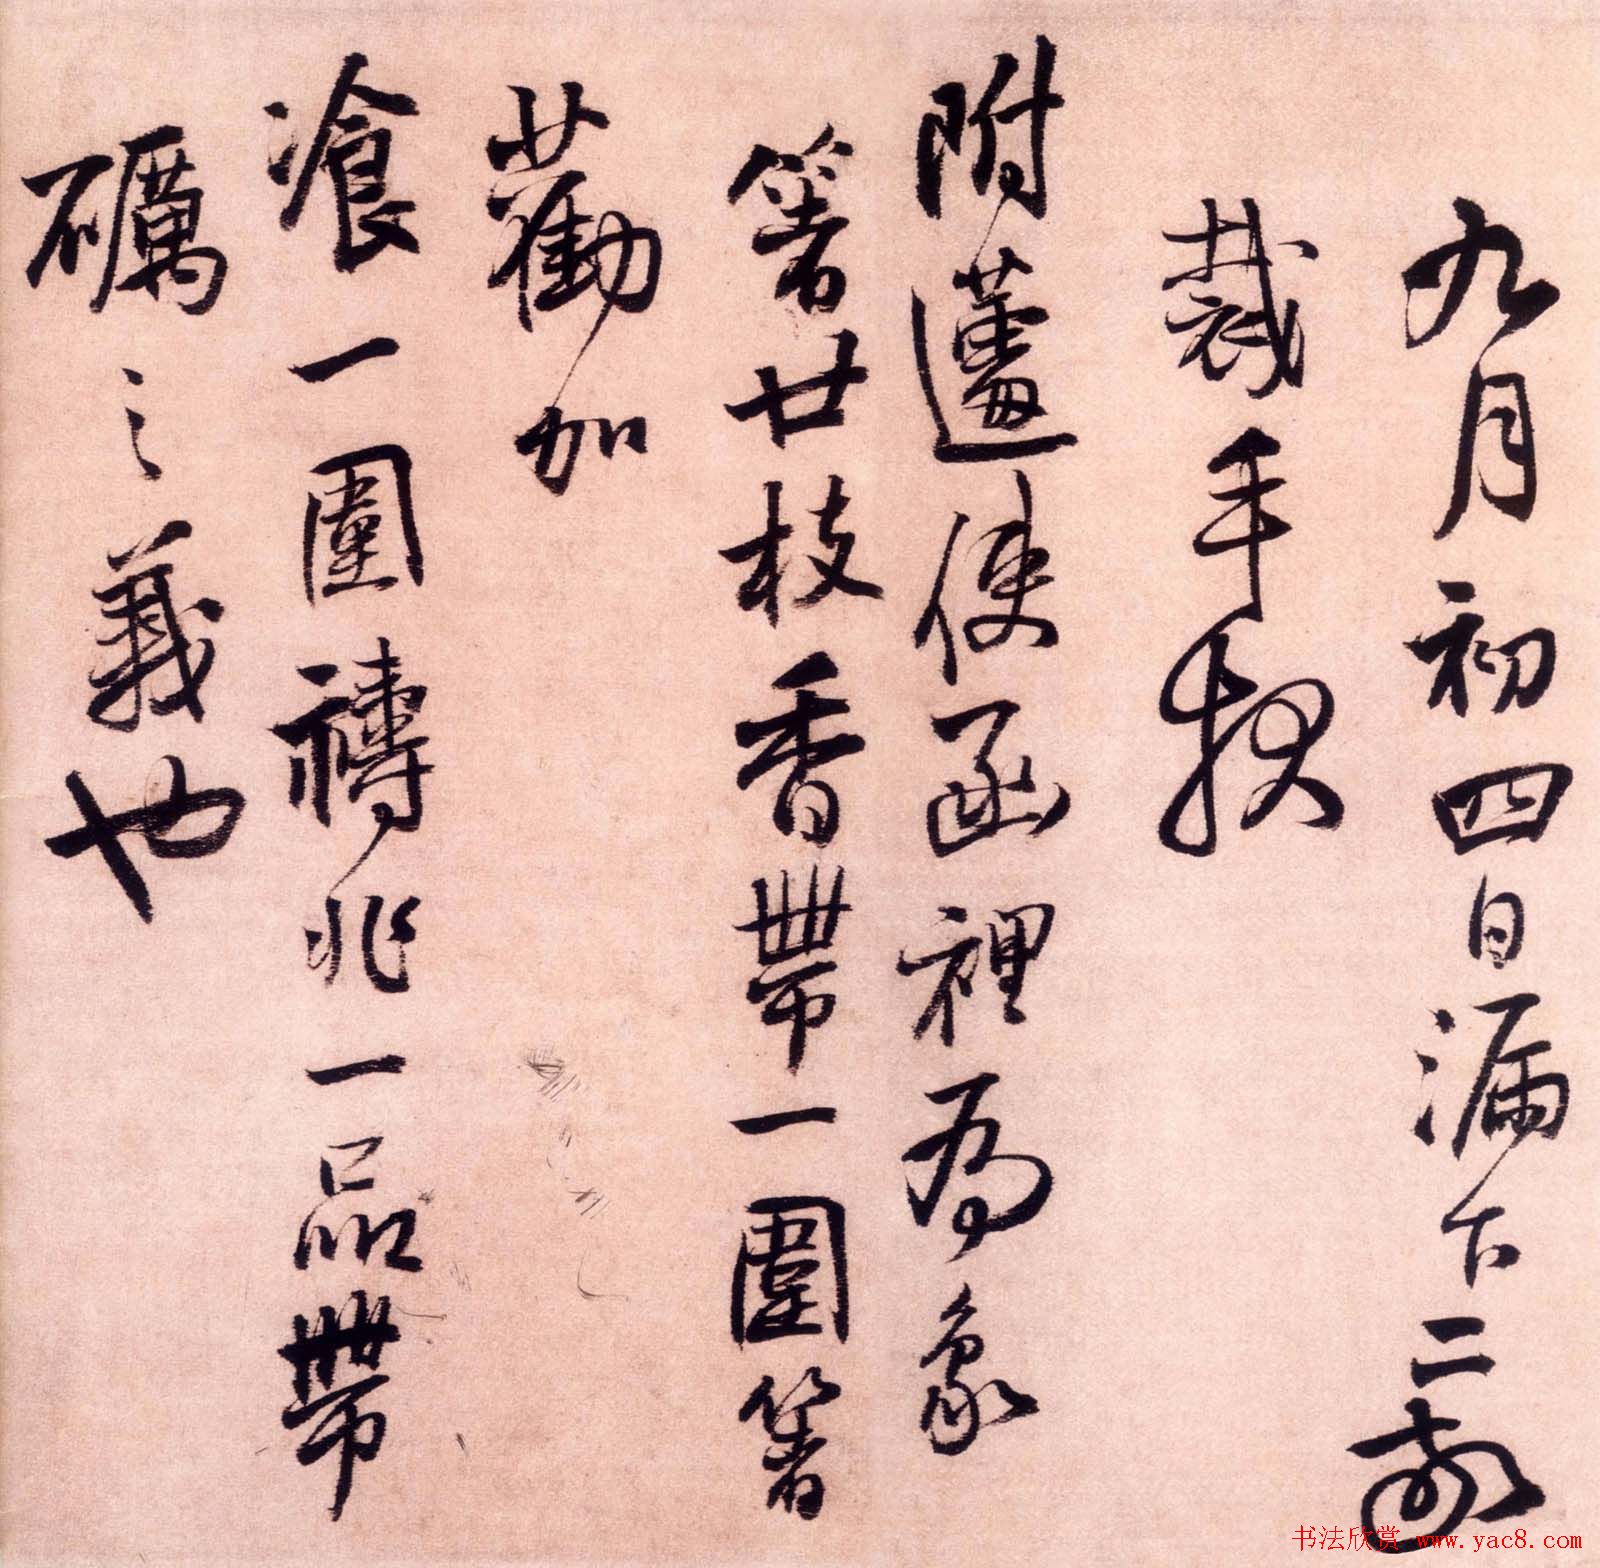 九月初四日漏下二鼓
裁手狀
附蘧使函裡爲象
箸廿枝香帶一圍箸
勸加
飡一圍禱兆一品帶
礪之義也
书法欣赏 www.yac8.com